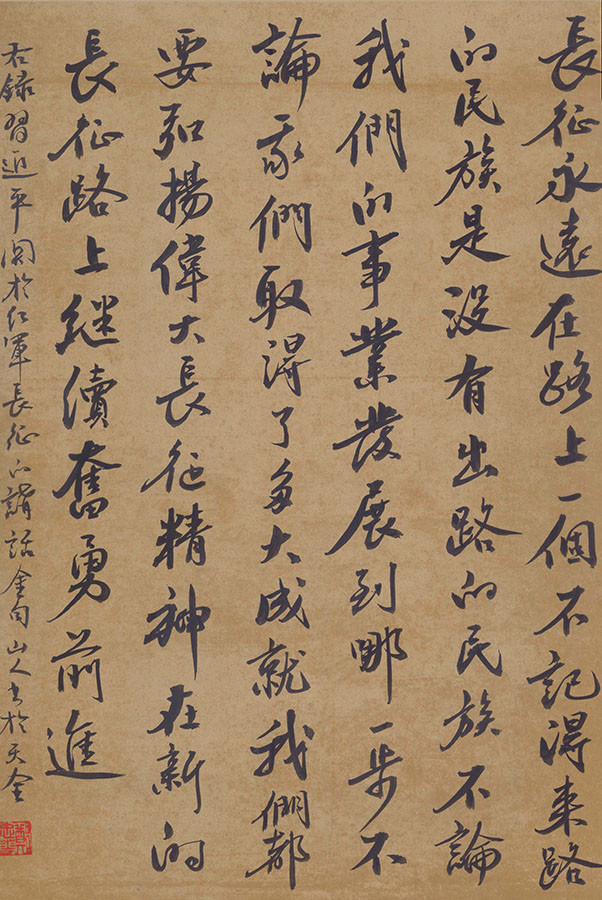 長征永遠在路上一個不記得来路
的民族是没有出路的民族不論
我們的事業發展到哪一步不
論我們取得了多大成就我們都
要弘揚偉大長征精神在新的
長征路上继續奮勇前進
右録習近平関於红軍長征的講話金句山人书於天全